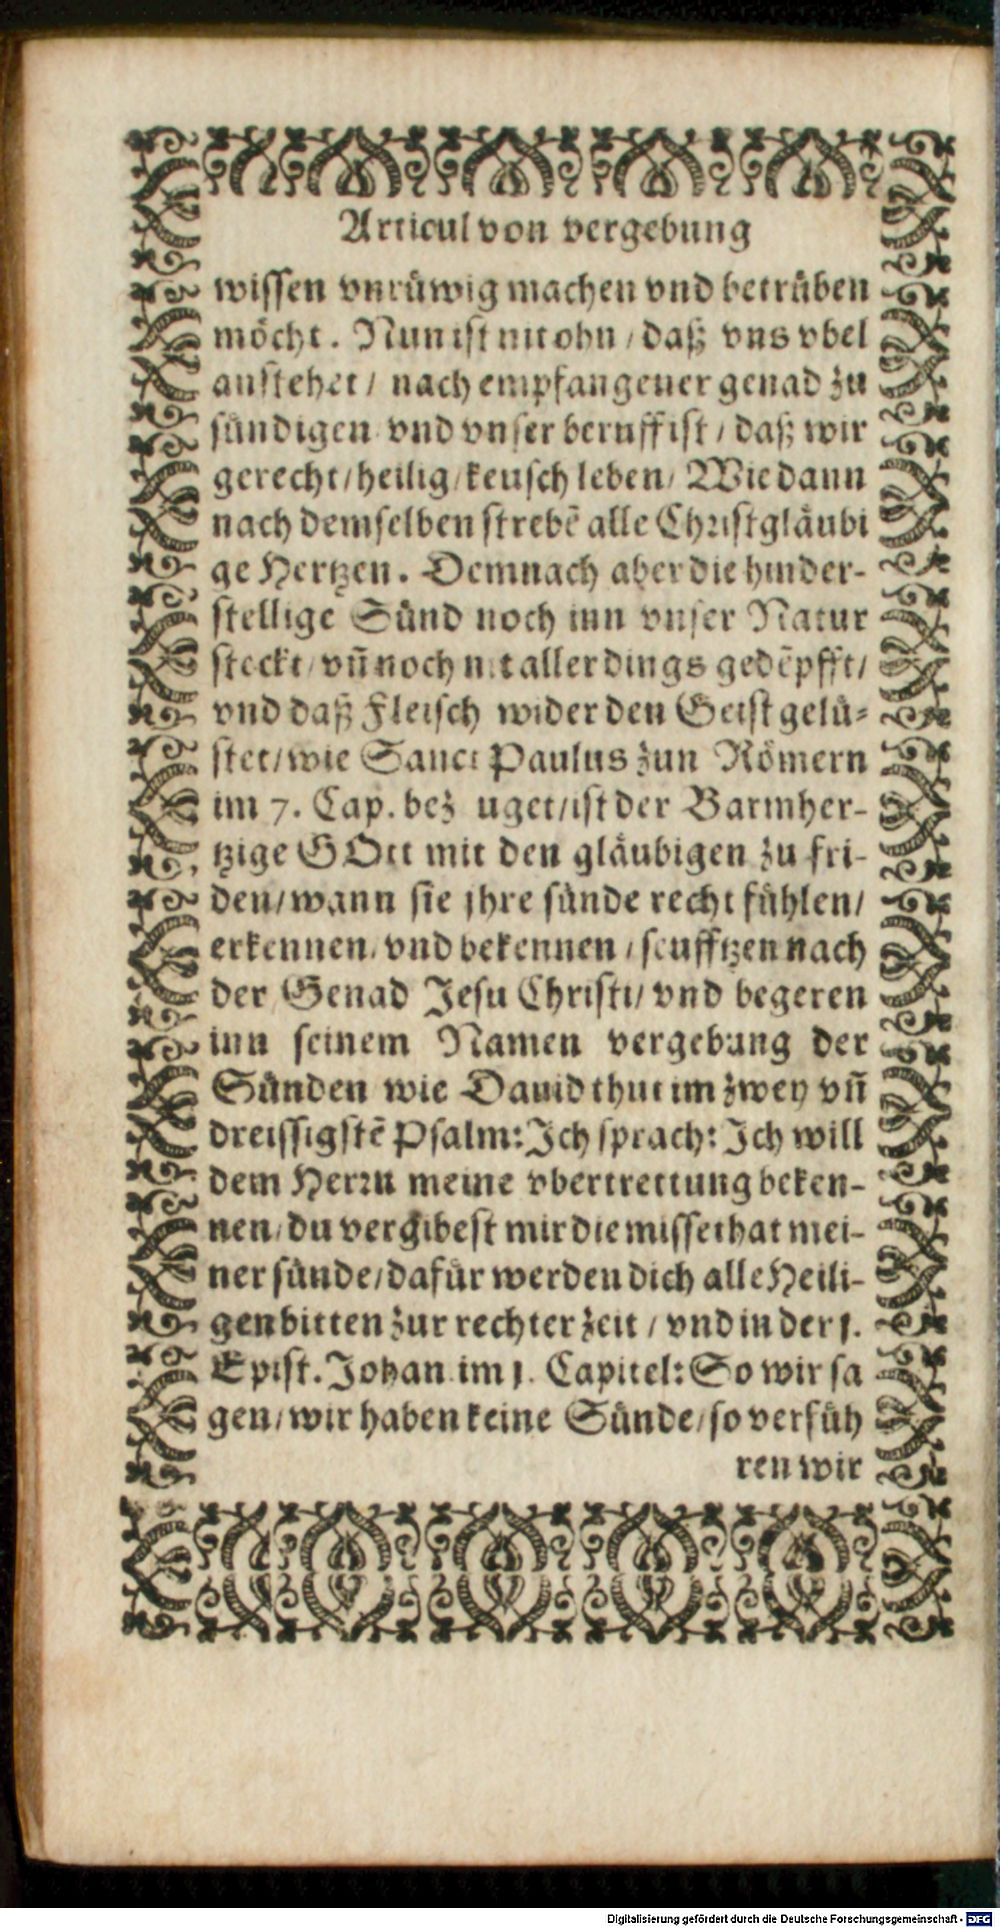 Articul von vergebung
wissen vnrüwig machen vnd betrüben
möcht. Nun ist nit ohn / daß vns vbel
anstehet / nach empfangener genad zu
sündigen vnd vnser beruff ist / daß wir
gerecht / heilig / keusch leben / Wie dann
nach demselben strebẽ alle Christgläubi
ge Hertzen. Demnach aber die hinder-
stellige Sünd noch inn vnser Natur
steckt / vñ noch nit aller dings gedẽpfft /
vnd daß Fleisch wider den Geist gelü-
stet / wie Sanct Paulus zun Römern
im 7. Cap. bez uget / ist der Barmher-
tzige GOtt mit den gläubigen zu fri-
den / wann sie jhre sünde recht fühlen /
erkennen / vnd bekennen / seufftzen nach
der Genad Jesu Christi / vnd begeren
inn seinem Namen vergebung der
Sünden wie Dauid thut im zwey vñ
dreissigstẽ Psalm: Ich sprach: Ich will
dem Herrn meine vbertrettung beken-
nen / du vergibest mir die missethat mei-
ner sünde / dafür werden dich alle Heili-
gen bitten zur rechter zeit / vnd in der 1.
Epist. Johan. im 1. Capitel: So wir sa
gen / wir haben keine Sünde / so verfüh
ren wir
Digitalisierung gefördert durch die Deutsche Forschungsgemeinschaft - DFG